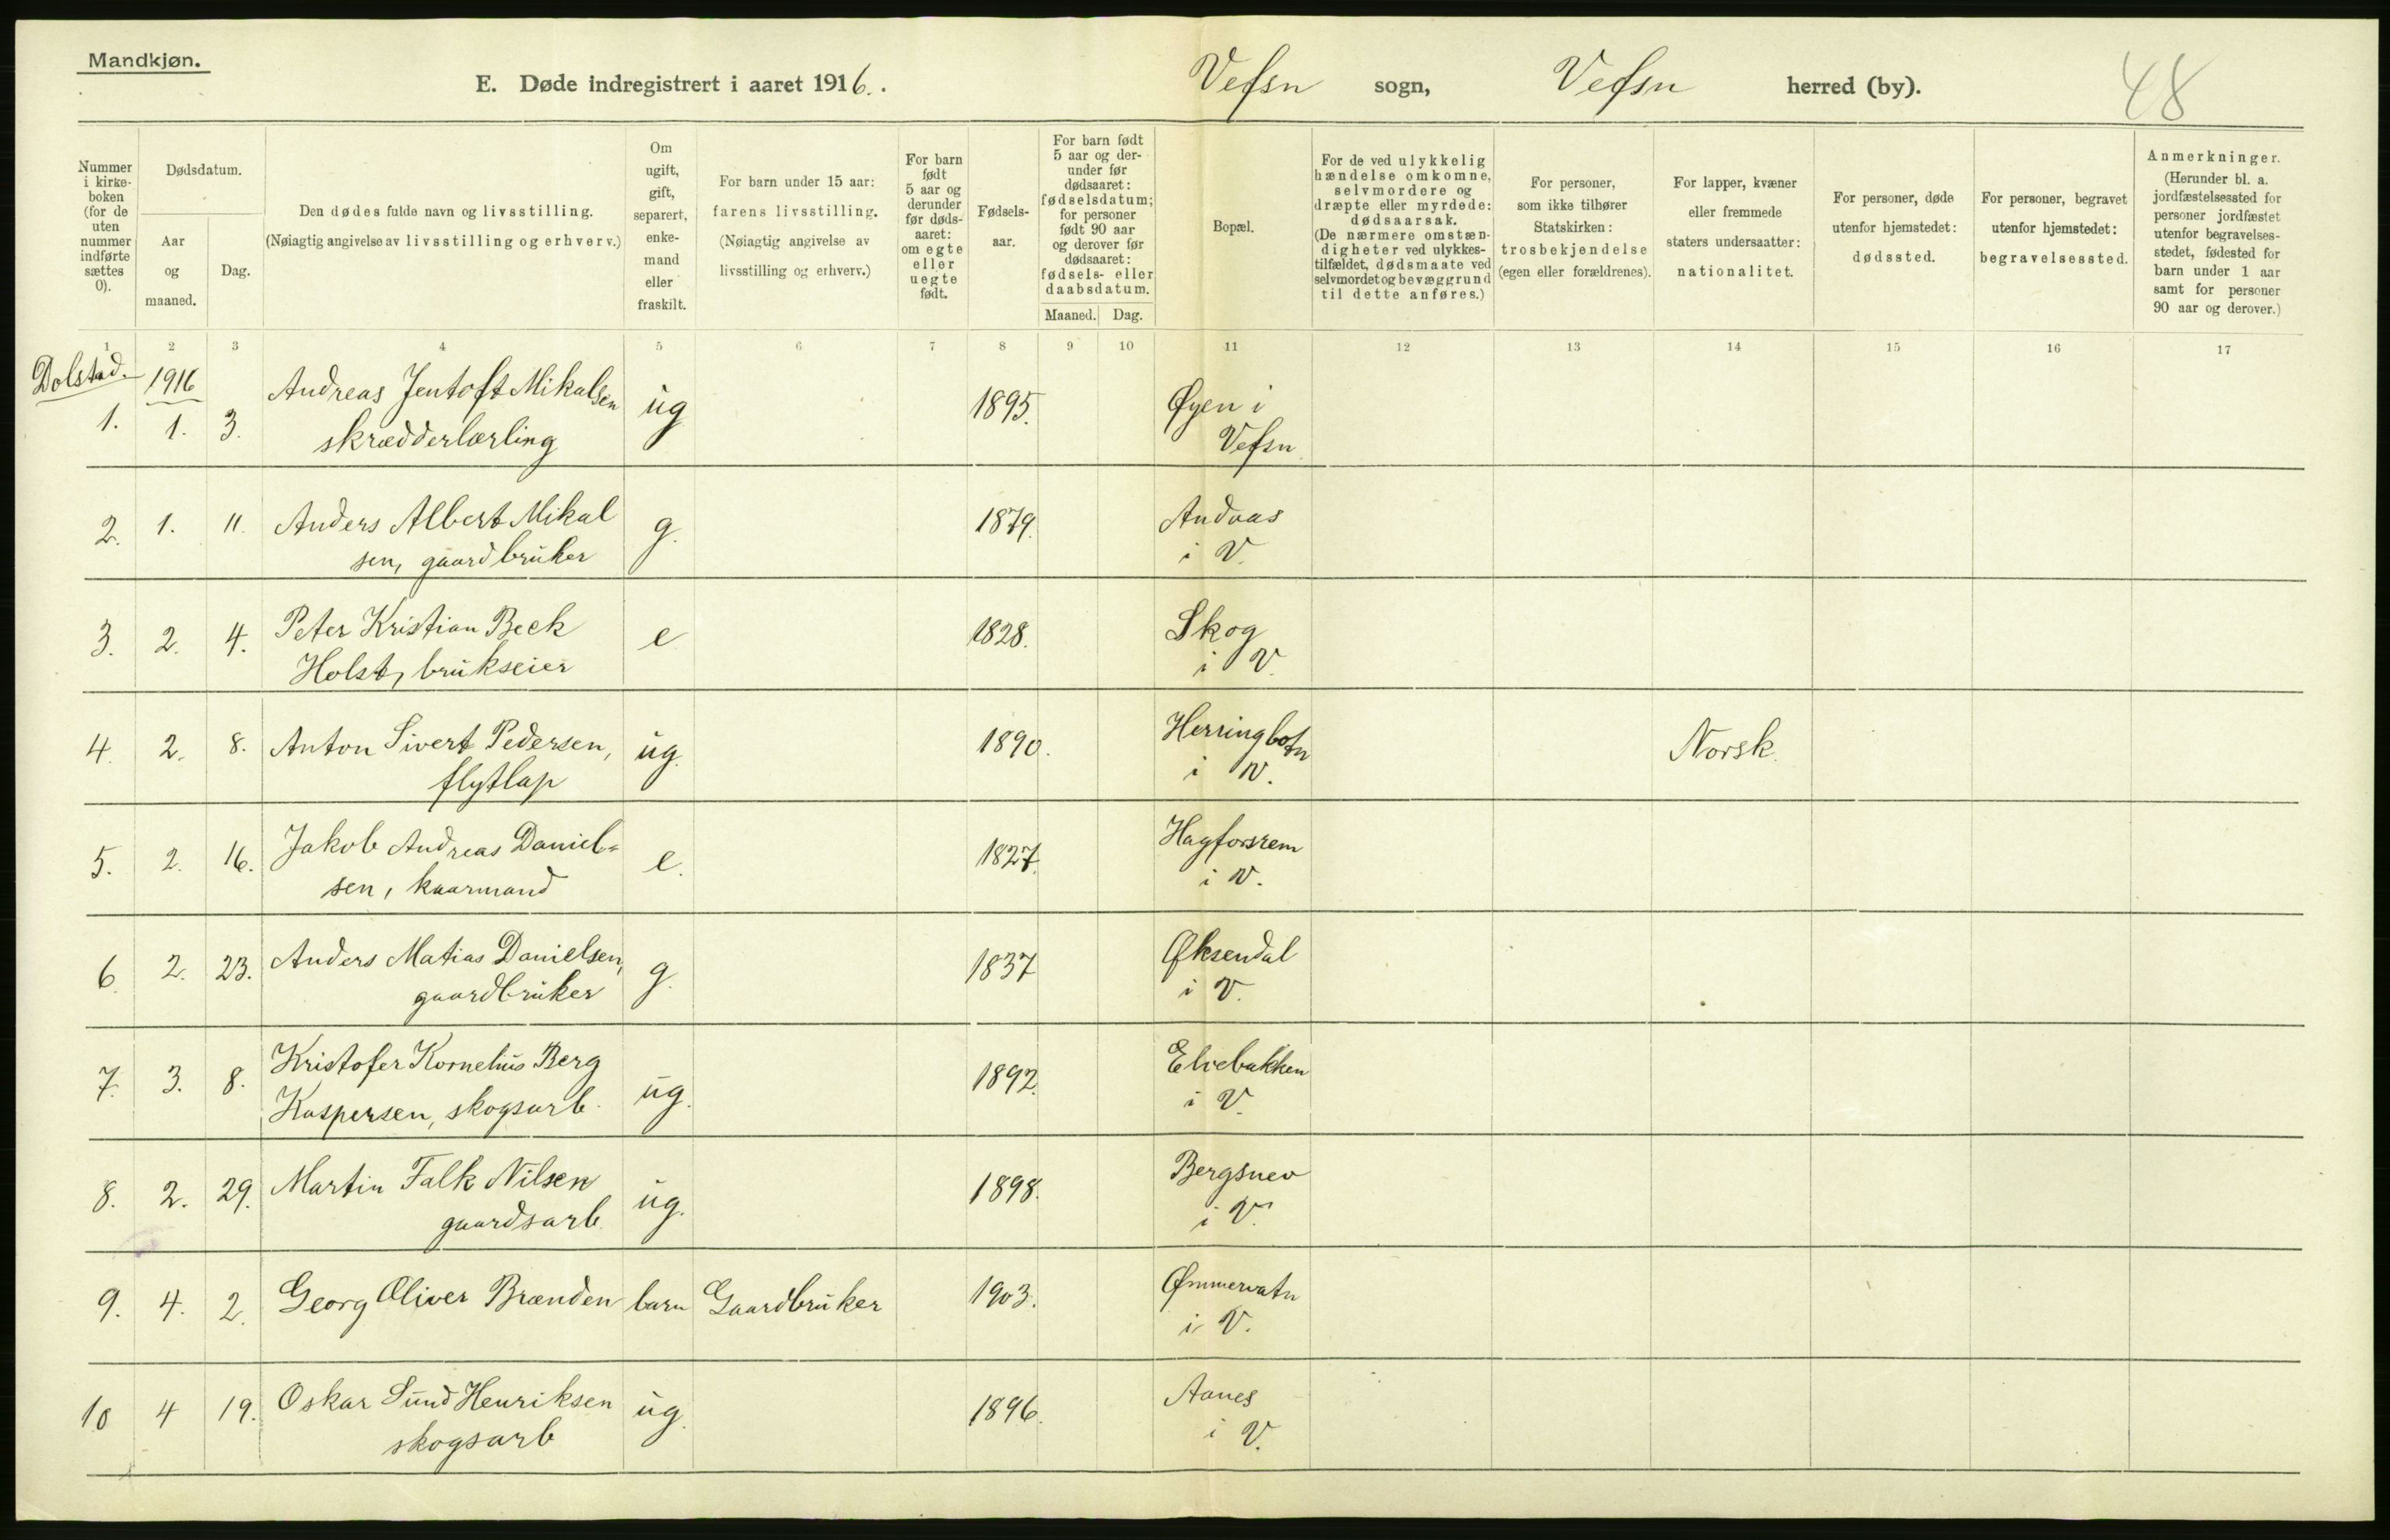 Mandkjøn.
E. Døde indregistrert i aaret 1916. Vefsn sogn, Vefsn herred (by). 48
Nummer i kirke- boken (for de uten nummer indførte sættes 0).
Dødsdatum.
Aar og maaned.
Dag.
Den dødes fulde navn og livsstilling.
(Nøiagtig angivelse av livsstilling og erhverv.)
Om ugift, gift, separert, enke- mand eller fraskilt.
For barn under 15 aar: farens livsstilling.
(Nøiagtig angivelse av livsstilling og erhverv.)
For barn født 5 aar og derunder før døds- aaret: om egte eller uegte født.
Fødsels- aar.
For barn født 5 aar og der- under før dødsaaret: fødselsdatum; for personer født 90 aar og derover før dødsaaret: fødsels- eller daabsdatum.
Maaned. Dag.
Bopæl.
For de ved ulykkelig hændelse omkomne, selvmordere og dræpte eller myrdede: dødsaarsak.
(De nærmere omstæn- digheter ved ulykkes- tilfældet, dødsmaate ved selvmordet og bevæggrund til dette anføres.)
For personer, som ikke tilhører Statskirken: trosbekjendelse (egen eller forældrenes).
For lapper, kvæner eller fremmede staters undersaatter: nationalitet.
For personer, døde utenfor hjemstedet: dødssted.
For personer, begravet utenfor hjemstedet: begravelsessted.
Anmerkninger.
(Herunder bl. a. jordfæstelsessted for personer jordfæstet utenfor begravelses- stedet, fødested for barn under 1 aar samt for personer 90 aar og derover.)
1 2 3 4 5 6 7 8 9 10 11 12 13 14 15 16 17
Dolstad. 1916
1. 1. 3. Andreas Jentoft Mikalsen ug 1895. Øyen i
skrædderlærling Vefsn
2. 1. 11. Anders Albert Mikal g. 1879. Andaas
sen, gaardbruker i V.
3. 2. 4. Peter Kristian Beck e 1828. Skog
Holst, brukseier i V.
4. 2. 8. Anton Sivert Pedersen, ug. 1890. Herringbotn Norsk.
flytlap i V.
5. 2. 16. Jakob Andreas Daniel= e. 1827. Hagforsrem
sen, kaarmand i V.
6. 2. 23. Anders Matias Danielsen, g. 1837 Øksendal
gaardbruker i V.
7. 3. 8. Kristofer Kornelius Berg ug. 1892. Elvebakken
Kaspersen, skogsarb. i V.
8. 2. 29. Martin Falk Nilsen ug. 1898. Bergsnev
gaardsarb. i V.
9. 4. 2. Georg Oliver Brænden barn Gaardbruker 1903. Ømmervatn
i V.
10 4 19. Oskar Sund Henriksen ug. 1896. Aanes
skogsarb i V.